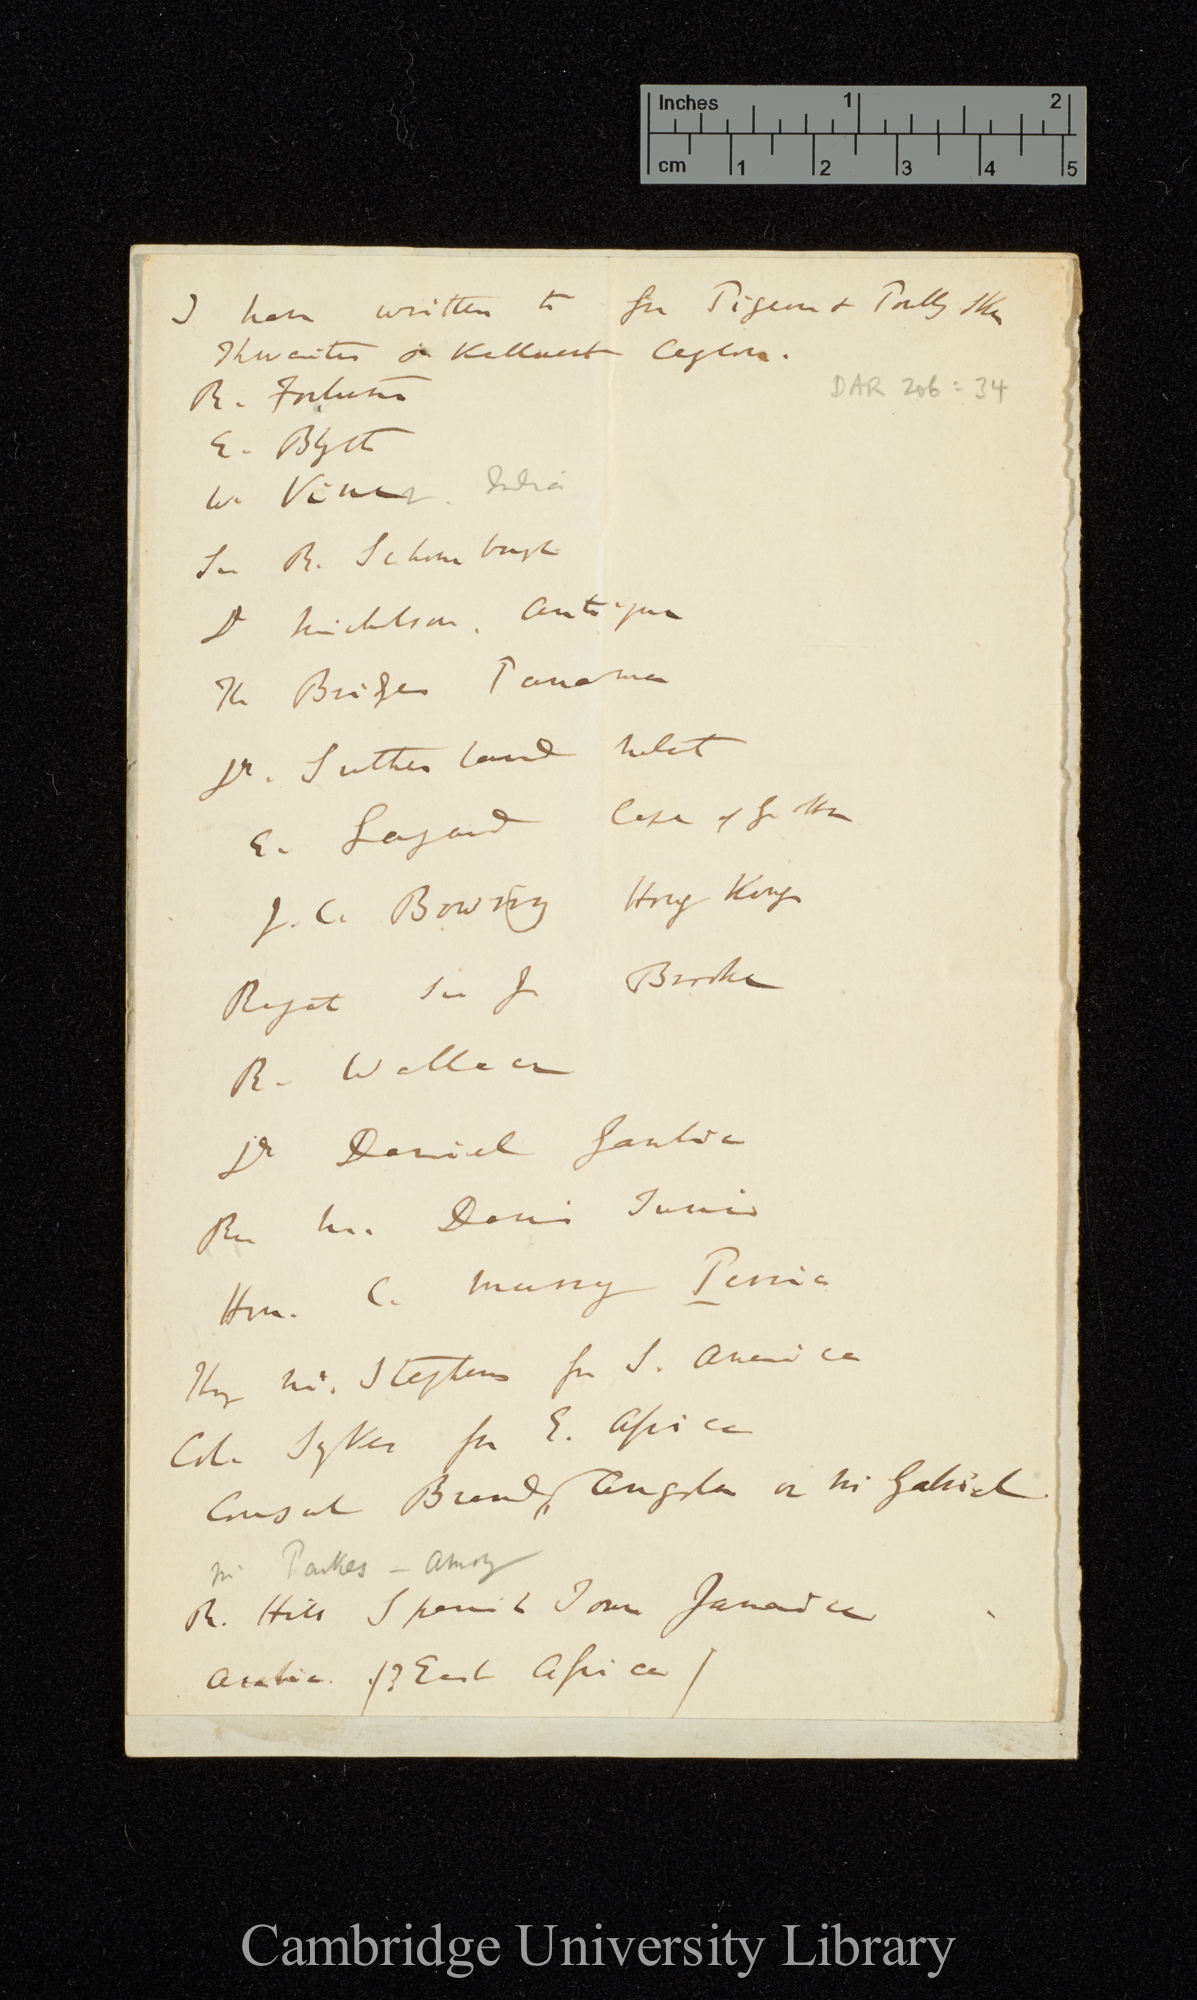 Inches 1 2
cm 1 2 3 4 5
I have written to for Pigeon & Poultry Skins
Thwaites or Kellaert Ceylon.
DAR 206: 34
R. Fortune
E. Blyth
W. Vernon India
Sir R. Schomburgk
Dr Nicholson. Antigua
Th Bridges Panama
Dr. Sutherland Natal
E. Layard Cape of G. Hope
J. C. Bowring Hong Kong
Rajah Sir J Brooke
R. Wallace
Dr Daniel Gambia
Rev Mr. Davis Tunis
Hon. C. Murray Persia
Mr. Stephens for S. America
Col. Sykes for E. Africa
Consul Brand, Angola or Mr Gabriel
Mr Parkes – Amoy
R. Hill Spanish Town Jamaica
Arabia. (? East Africa)
Cambridge University Library